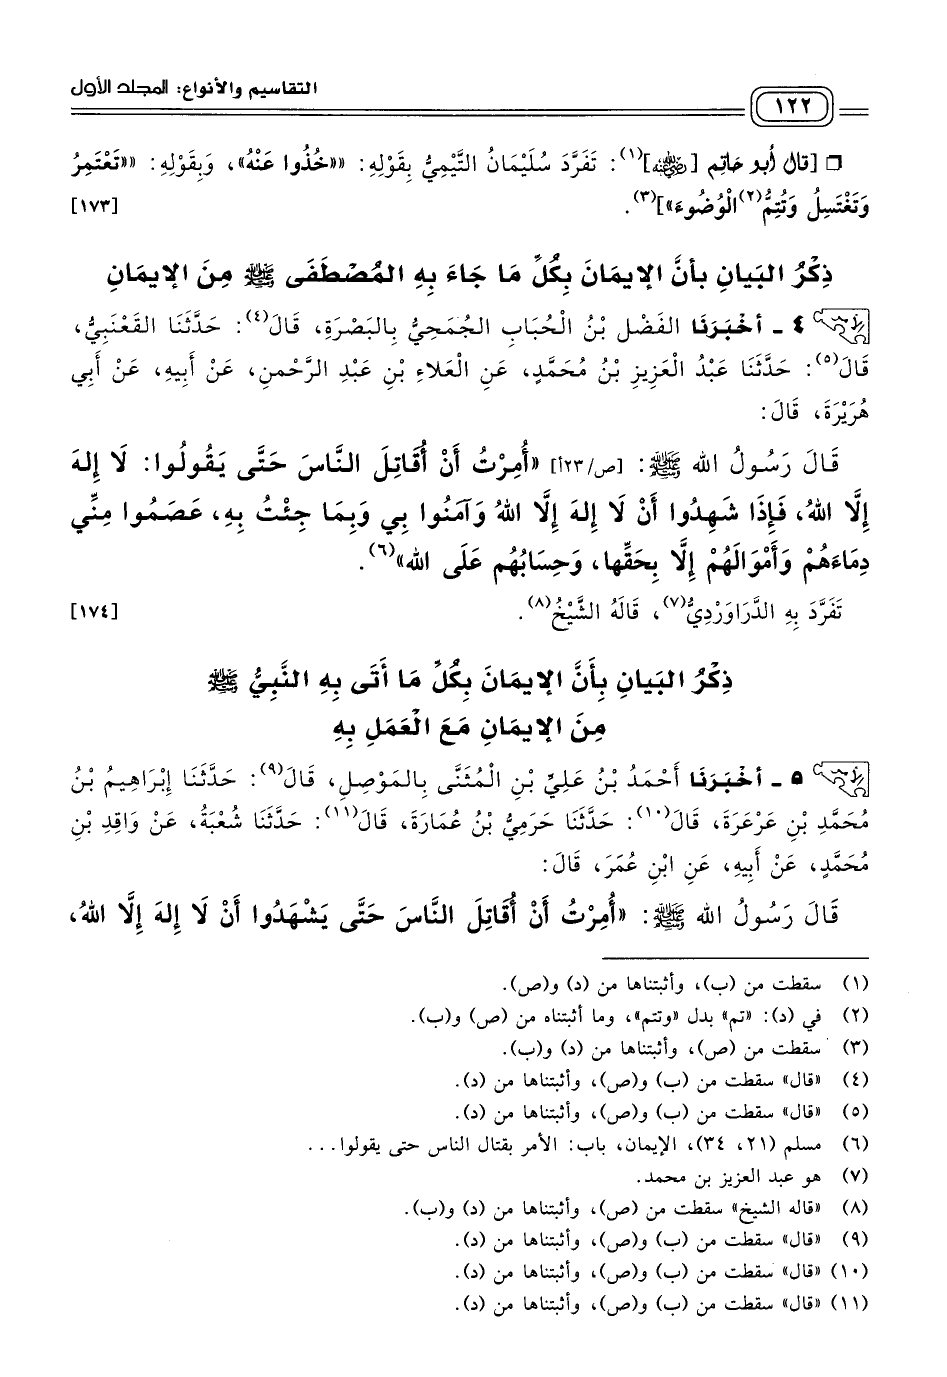 التقاسيم والأنواع: المجلد الأول
١٢٢
□ [قال أبو حاتم [رضي الله عنه](١): تَفَرَّدَ سُلَيْمَانُ التَّيْمِيُّ بِقَوْلِهِ: «خُذُوا عَنْهُ»، وَبِقَوْلِهِ: «تَعْتَمِرُ
وَتَغْتَسِلُ وَتُتِمُّ(٢) الْوُضُوءَ»](٣). [١٧٣]
ذِكْرُ البَيَانِ بأنَّ الإيمَانَ بِكُلِّ مَا جَاءَ بِهِ المُصْطَفَى ﷺ مِنَ الإيمَانِ
٤ ـ أخْبَرَنَا الفَضْل بْنُ الْحُبَابِ الجُمَحِيُّ بِالبَصْرَةِ، قَالَ(٤): حَدَّثَنَا القَعْنَبِيُّ،
قَالَ(٥): حَدَّثَنَا عَبْدُ الْعَزِيزِ بْنُ مُحَمَّدٍ، عَنِ الْعَلاءِ بْنِ عَبْدِ الرَّحْمنِ، عَنْ أَبِيهِ، عَنْ أَبِي
هُرَيْرَةَ، قَالَ:
قَالَ رَسُولُ الله ﷺ: [ص/٢٣أ] «أُمِرْتُ أَنْ أُقَاتِلَ النَّاسَ حَتَّى يَقُولُوا: لَا إِلهَ
إِلَّا اللهُ، فَإِذَا شَهِدُوا أَنْ لَا إِلهَ إِلَّا اللهُ وَآمَنُوا بِي وَبِمَا جِئْتُ بِهِ، عَصَمُوا مِنِّي
دِمَاءَهُمْ وَأَمْوَالَهُمْ إِلَّا بِحَقِّها، وَحِسَابُهُم عَلَى الله»(٦).
تَفَرَّدَ بِهِ الدَّرَاوَرْدِيُّ(٧)، قَالَهُ الشَّيْخُ(٨). [١٧٤]
ذِكْرُ البَيَانِ بِأَنَّ الإيمَانَ بِكُلِّ مَا أَتَى بِهِ النَّبِيُّ ﷺ
مِنَ الإيمَانِ مَعَ الْعَمَلِ بِهِ
٥ ـ أخْبَرَنَا أَحْمَدُ بْنُ عَلِيِّ بْنِ الْمُثَنَّى بِالمَوْصِلِ، قَالَ(٩): حَدَّثَنَا إِبْرَاهِيمُ بْنُ
مُحَمَّدِ بْنِ عَرْعَرَةَ، قَالَ(١٠): حَدَّثَنَا حَرَمِيُّ بْنُ عُمَارَةَ، قَالَ(١١): حَدَّثَنَا شُعْبَةُ، عَنْ وَاقِدِ بْنِ
مُحَمَّدٍ، عَنْ أَبِيهِ، عَنِ ابْنِ عُمَرَ، قَالَ:
قَالَ رَسُولُ الله ﷺ: «أُمِرْتُ أَنْ أُقَاتِلَ النَّاسَ حَتَّى يَشْهَدُوا أَنْ لَا إِلهَ إِلَّا اللهُ،
(١) سقطت من (ب)، وأثبتناها من (د) و(ص).
(٢) في (د): «تم» بدل «وتتم»، وما أثبتناه من (ص) و(ب).
(٣) سقطت من (ص)، وأثبتناها من (د) و(ب).
(٤) «قال» سقطت من (ب) و(ص)، وأثبتناها من (د).
(٥) «قال» سقطت من (ب) و(ص)، وأثبتناها من (د).
(٦) مسلم (٢١، ٣٤)، الإيمان، باب: الأمر بقتال الناس حتى يقولوا...
(٧) هو عبد العزيز بن محمد.
(٨) «قاله الشيخ» سقطت من (ص)، وأثبتناها من (د) و(ب).
(٩) «قال» سقطت من (ب) و(ص)، وأثبتناها من (د).
(١٠) «قال» سقطت من (ب) و(ص)، وأثبتناها من (د).
(١١) «قال» سقطت من (ب) و(ص)، وأثبتناها من (د).